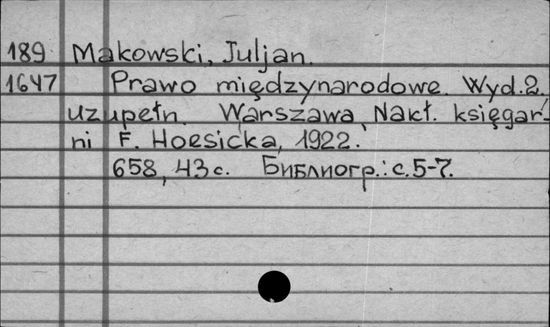 189 Makowski, Juljan.
1647 Prawo międzynarodowe. Wyd. 2.
uzupełn. Warszawa, Nakł. księgar-
ni F. Hoesicka, 1922.
658, 43 с. Библиогр.: с. 5-7.